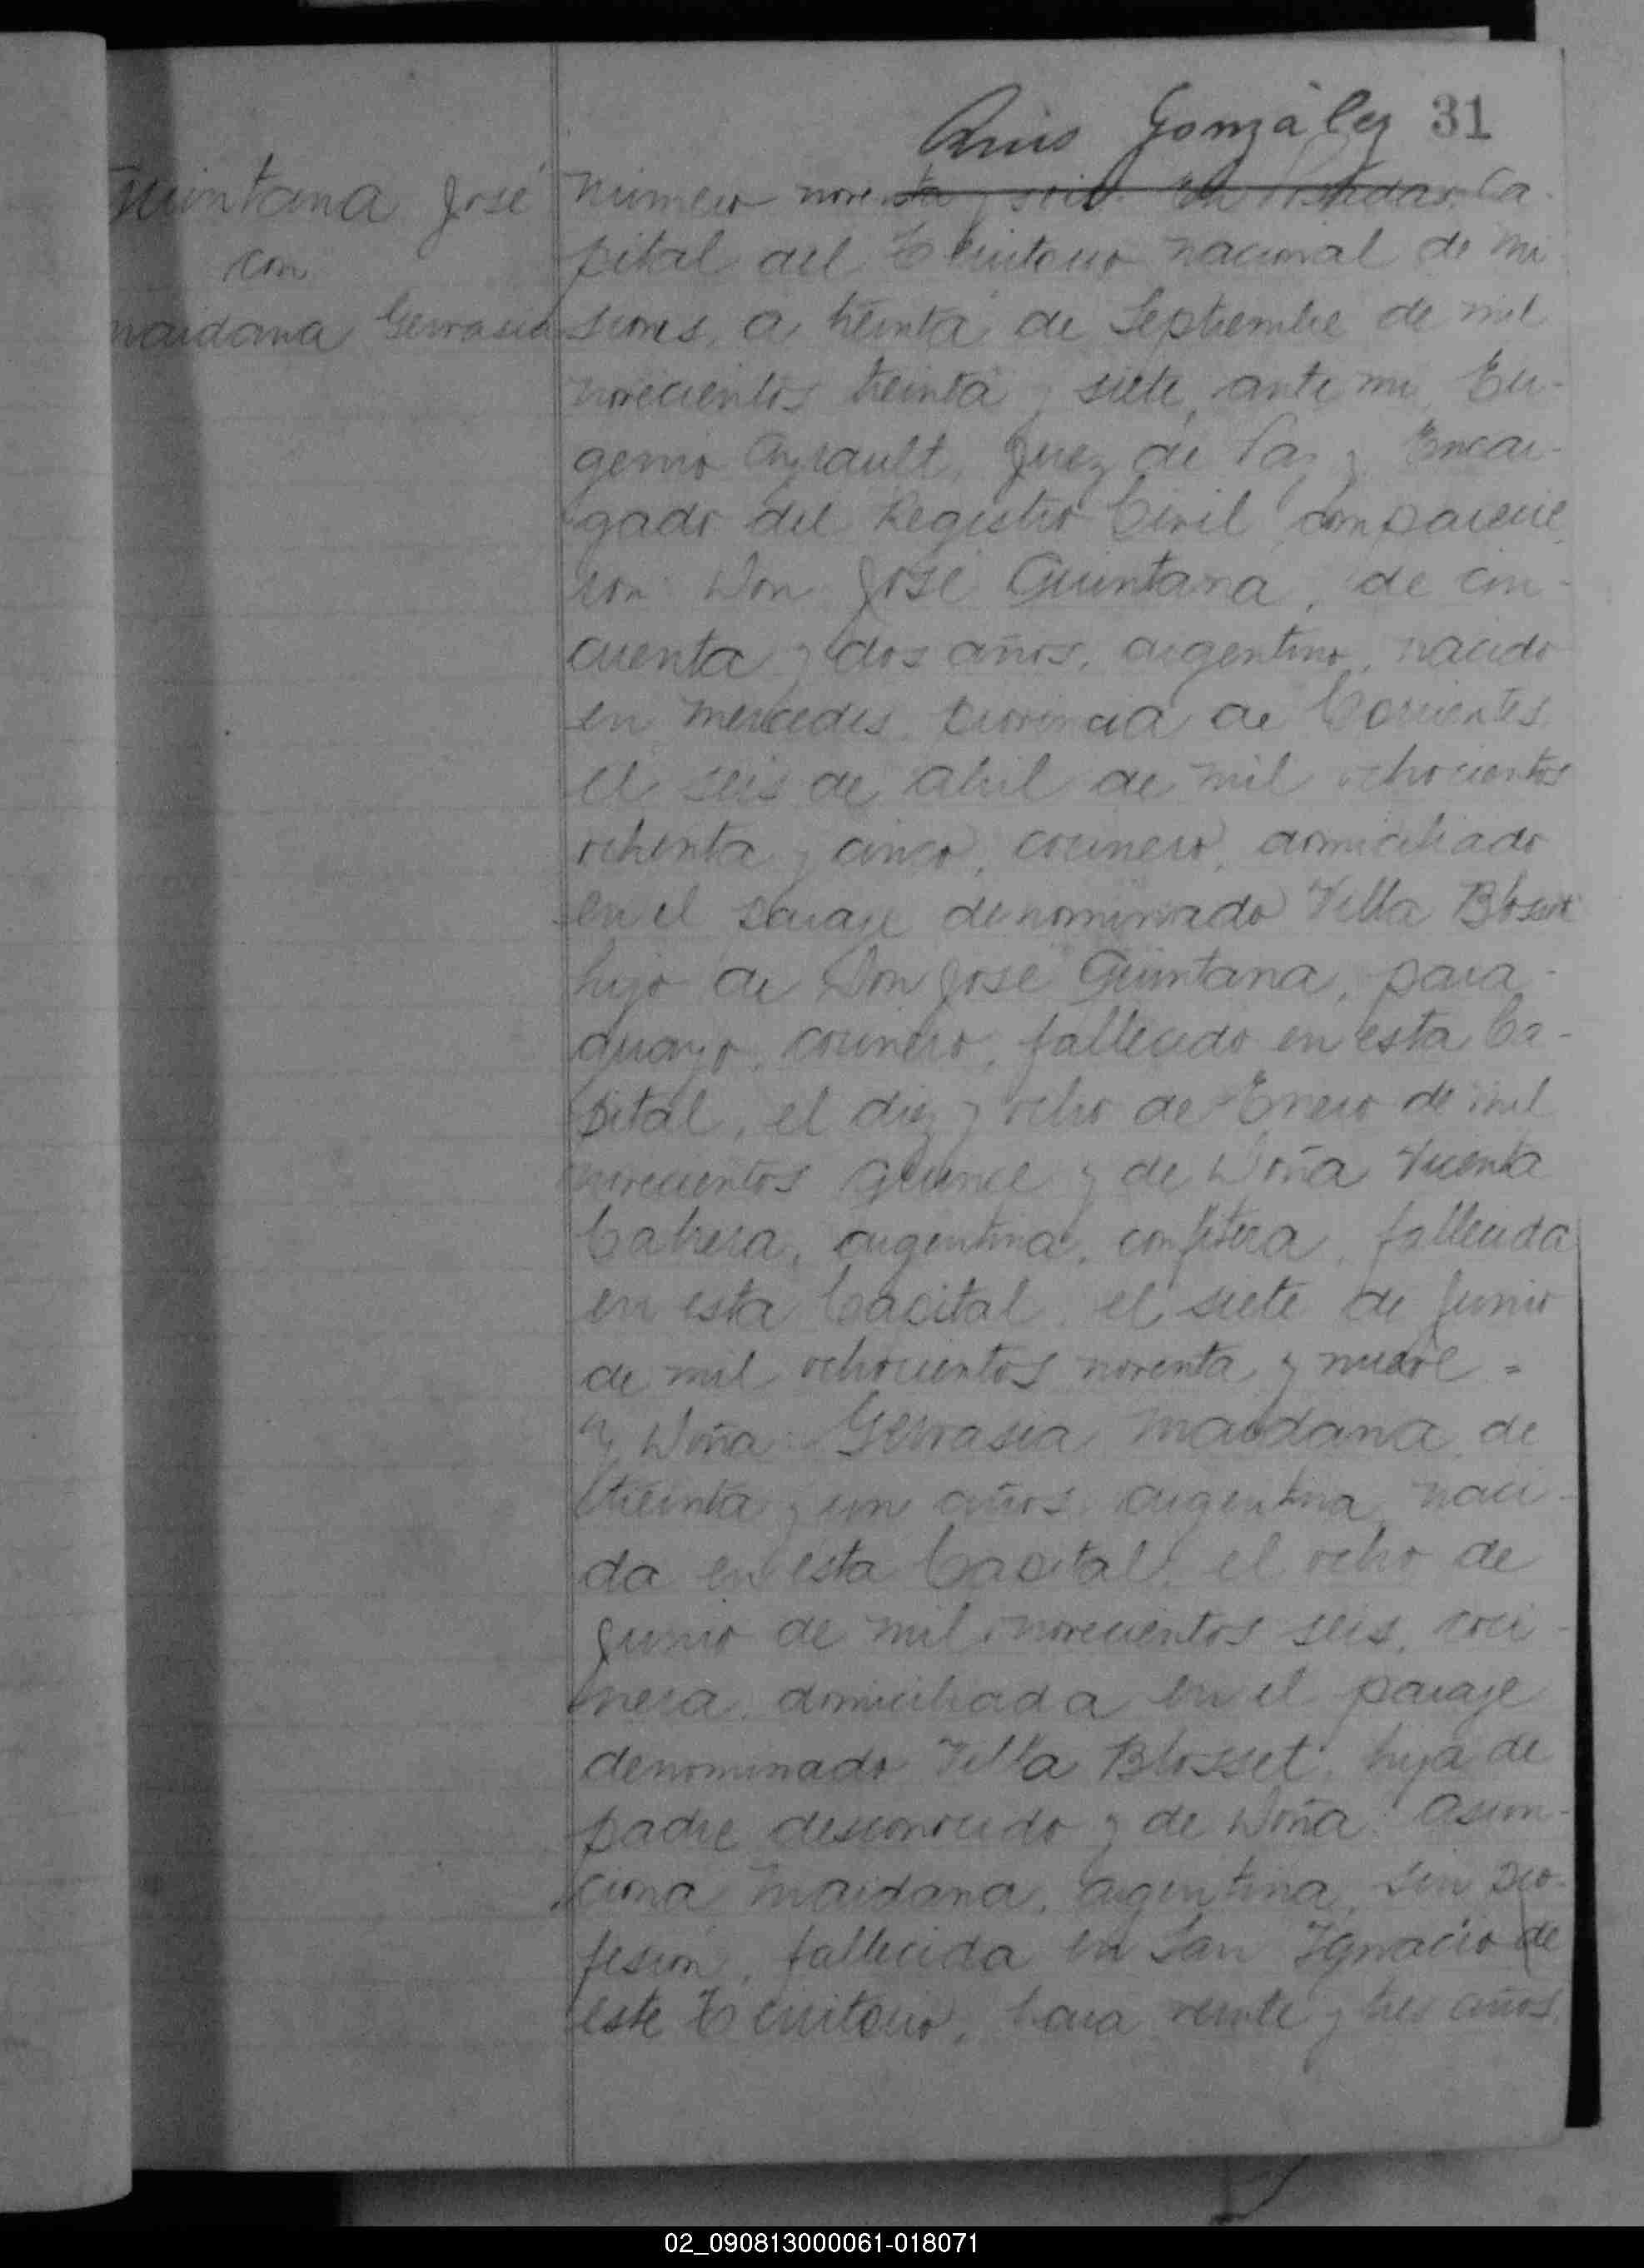 Luis González 31
Quintana José
con
Maidana Gervasia
Número noventa y seis. En Posadas, Ca-
pital del Territorio Nacional de Mi-
siones, a treinta de Septiembre de mil
novecientos treinta y siete, ante mi, Eu-
genio Ayrault, Juez de Paz y Encar-
gado del Registro Civil comparecie
ron: Don José Quintana, de cin-
cuenta y dos años, argentino, nacido
en Mercedes, Provincia de Corrientes
el seis de Abril de mil ochocientos
ochenta y cinco, cocinero, domiciliado
en el paraje denominado Villa Blosset
hijo de Don José Quintana, para-
guayo, cocinero, fallecido en esta Ca-
pital, el diez y ocho de Enero de mil
novecientos quince y de Doña Vicenta
Cabrera, argentina, confitera, fallecida
en esta Capital, el siete de Junio
de mil ochocientos noventa y nueve =
y Doña Gervasia Maidana, de
treinta y un años, argentina, naci-
da en esta Capital, el ocho de
Junio de mil novecientos seis, coci-
nera, domiciliada en el paraje
denominado Villa Blosset, hija de
padre desconocido y de Doña Asun-
ciona Maidana, argentina, sin pro-
fesion, fallecida en San Ignacio de
este Territorio, hara veinte y tres años.
02_090813000061-018071